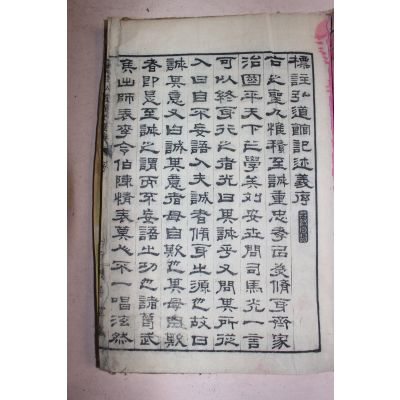 標註弘道館記述義序
古之聖人惟積至誠重忠孝而後脩身齊家
治國平天下之學矣劉安世問司馬光一言
可以終身行之者光曰其誠乎又問其所從
入曰自不妄語入夫誠者脩身之源也故曰
誠其意又曰誠其意指毋自欺也其毋自欺
者即是至誠之謂而不妄語之功也諸葛武
侯出師表李令伯陳情表莫不一唱泫然